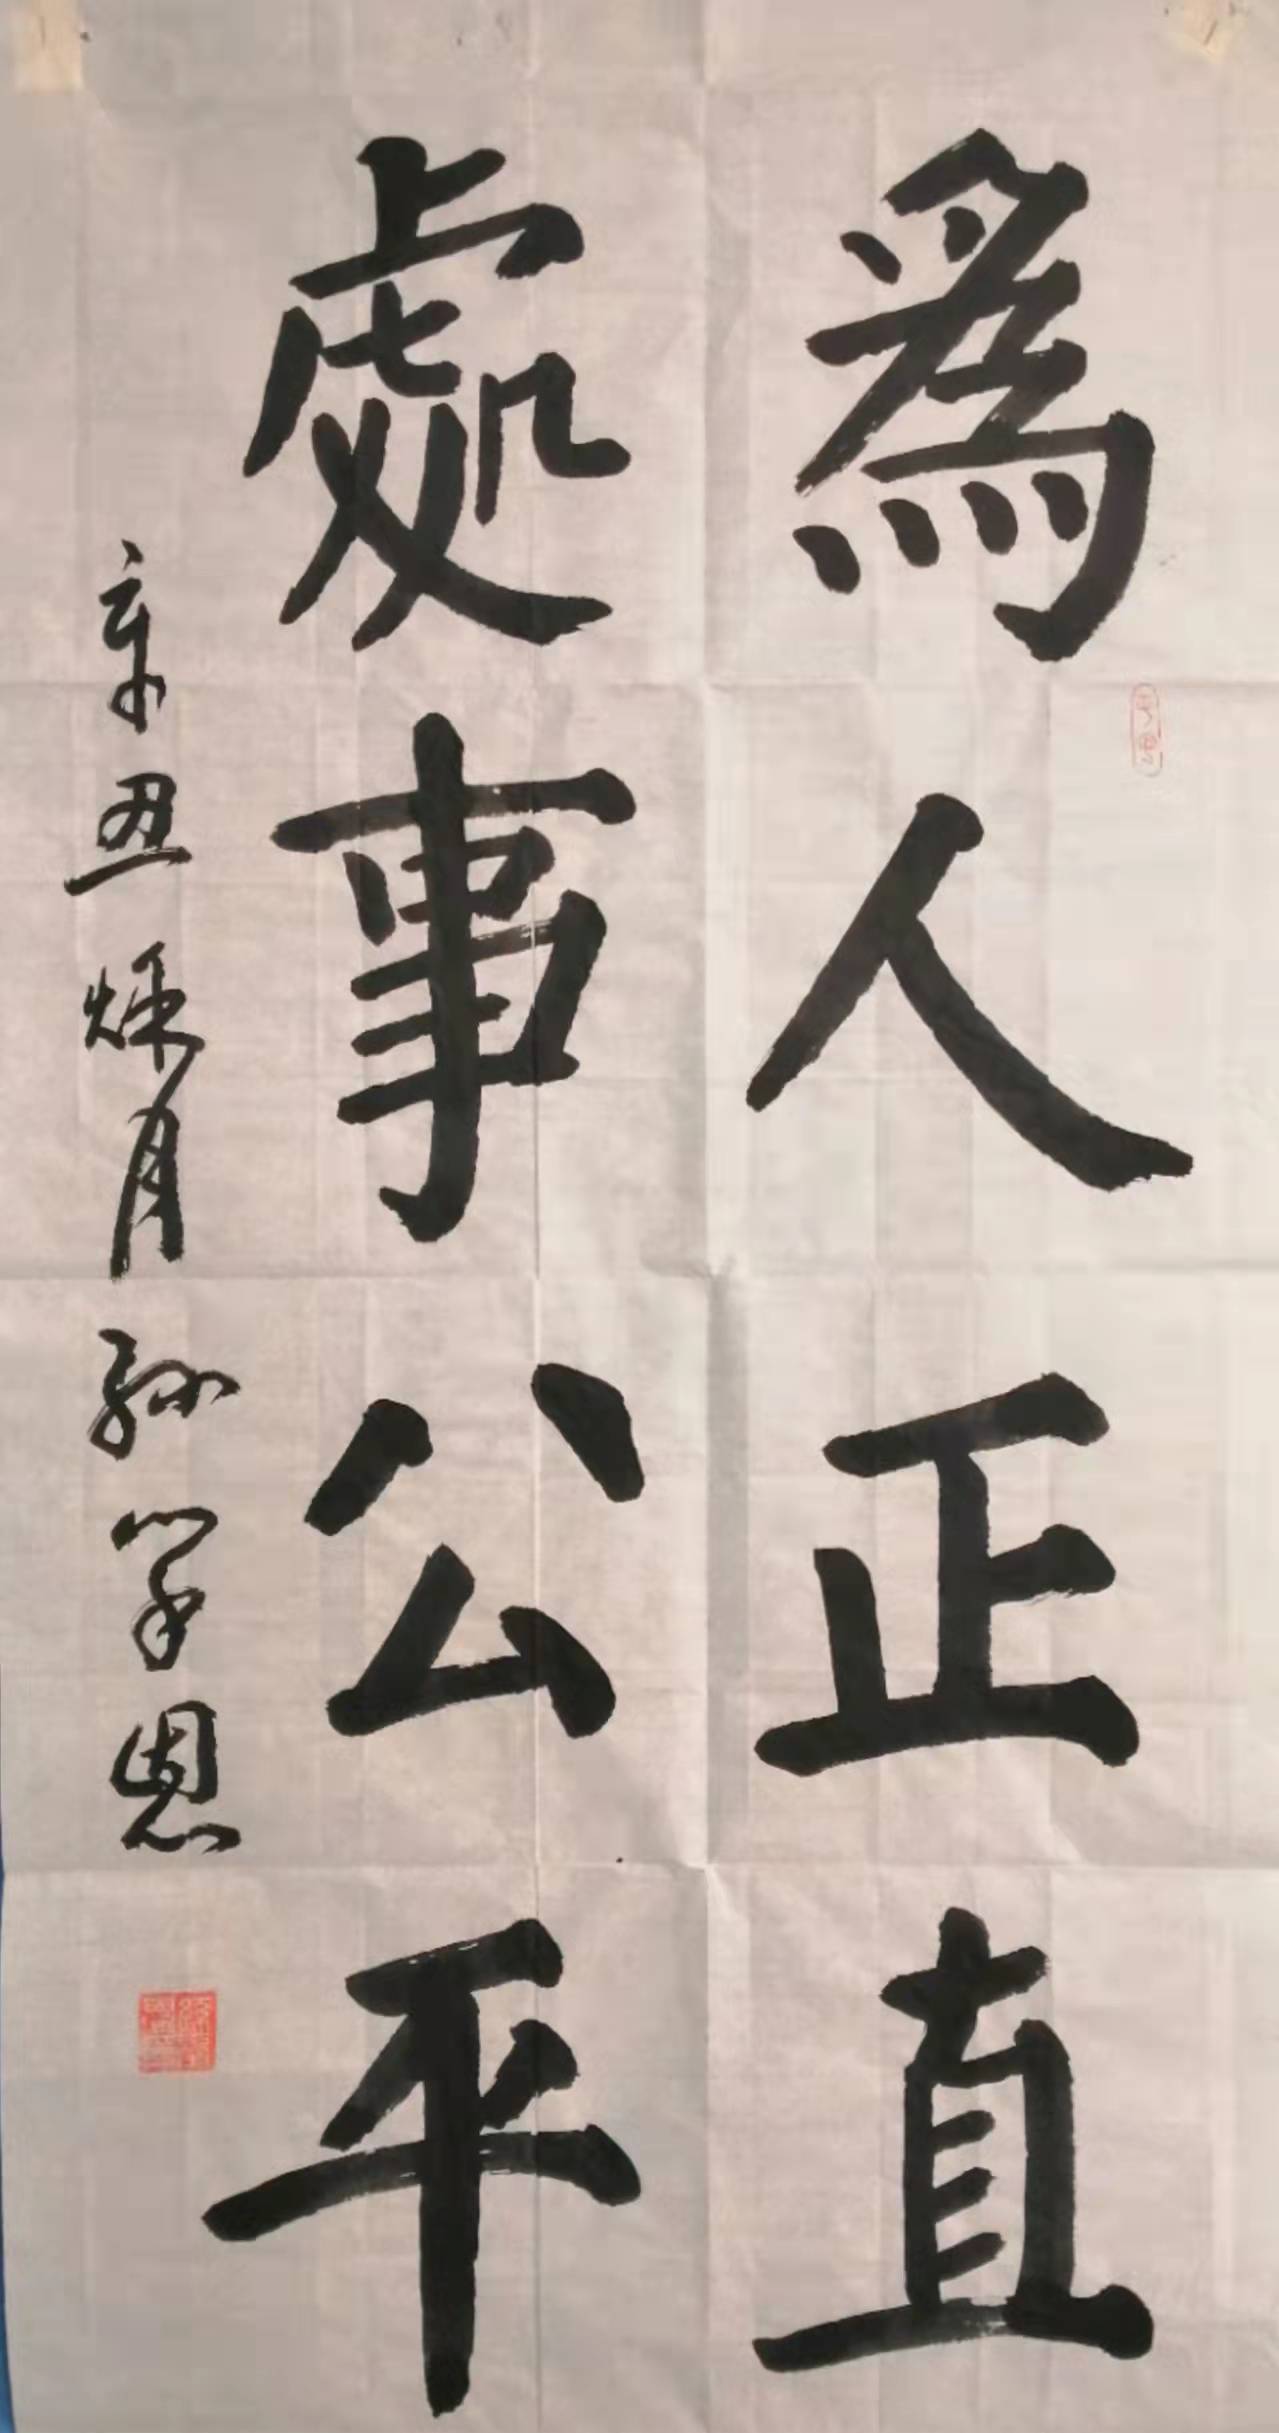 為人正直
處事公平
辛丑秌月孙学恩